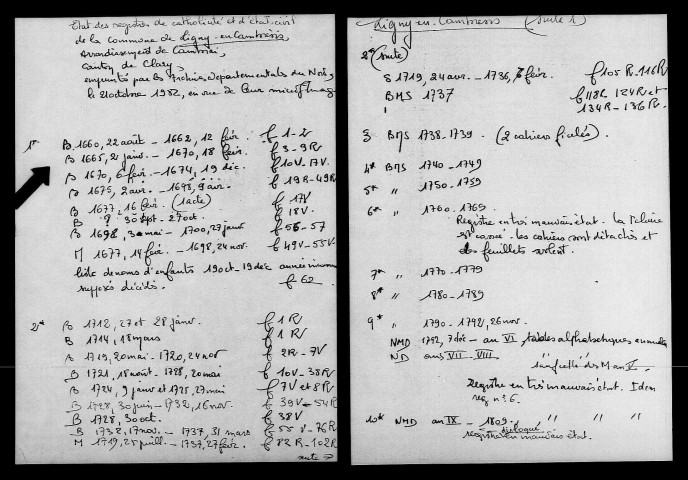 Etat des registres de catholicité et d'état civil
de la commune de Ligny-en-Cambrésis,
arrondissement de Cambrai,
canton de Clary,
empruntés par les Archives Départementales du Nord,
le 21 octobre 1982, en vue de leur microfilmage
1* B 1660, 22 août - 1662, 12 fév. f 1-2
B 1665, 2 janv. - 1670, 18 fév. f 3-9R
B 1670, 6 fév. - 1674, 19 déc. f 10V-17V.
B 1675, 2 avr. - 1698, 9 avr. f 19R-49R
B 1677, 16 fév. (1 acte) f 17V
B ? 30 sept - 27 oct. f 18V.
B 1698, 30 mai - 1700, 27 janv f 56-57
M 1677, 14 fév. - 1698, 24 nov. f 49V-55V.
liste de noms d'enfants 19 oct-19 déc année
supposés décédés. f 62
2* B 1712, 27 et 28 janv. f 1R
B 1714, 18 mars f 1R
B 1719, 20 mai - 1720, 24 nov f 2R-7V
B 1721, 18 août - 1728, 20 mai f 10V-38RV
B 1724, 9 janv et 1725, 27 mai f 7V et 8RV
B 1728, 30 juin - 1732, 16 nov. f 39V-54R
B 1728, 30 oct. f 38V
B 1732, 17 nov. - 1737, 31 mars f 55V-76R
M 1719, 25 juill. - 1737, 27 fév. f 82R-102R
suite →
Ligny-en-Cambrésis (suite 1)
2* (suite)
S 1719, 24 avr. - 1736, 7 fév. f 105R-116R
BMS 1737 f 118R 124R et
" 134R-136R.
3 BMS 1738-1739. (2 cahiers ficelés).
4* BMS 1740-1749
5* " 1750-1759
6* " 1760-1769
Registre en très mauvais état. La reliure
est cassée. les cahiers sont détachés et
des feuillets volent.
7* " 1770-1779
8* " 1780-1789
9* " 1790-1792, 26 nov.
NMD 1792, 7 déc - an VI, tables alphabétiques annuelles
ND ans VII-VIII
sauf celle des M an V.
Registre en très mauvais état. Idem
reg n° 6.
10* NMD an IX - 1809. " " "
registre disloqué en mauvais état.